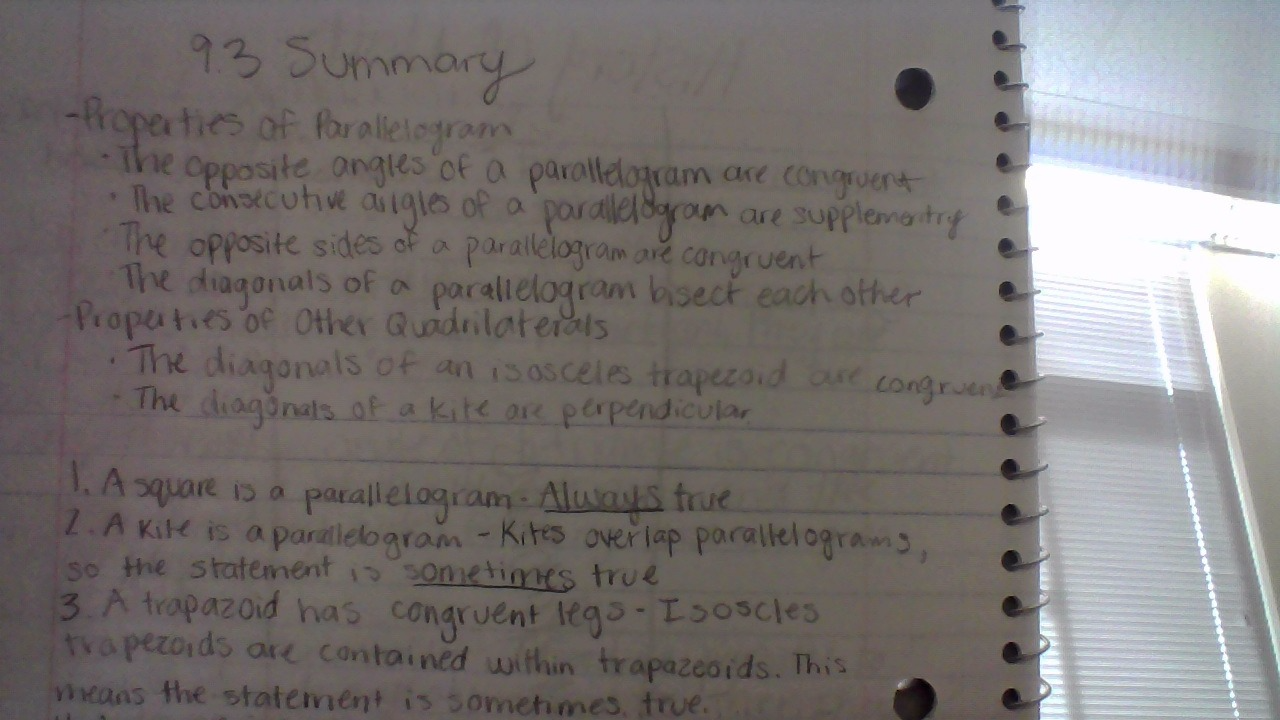 9.3 Summary
-Properties of Parallelogram
· The opposite angles of a parallelogram are congruent
· The consecutive angles of a parallelogram are supplementry
· The opposite sides of a parallelogram are congruent
The diagonals of a parallelogram bisect each other
-Properties of Other Quadrilaterals
· The diagonals of an isosceles trapezoid are congruent
· The diagonals of a kite are perpendicular.
1. A square is a parallelogram - Always true
2. A kite is a parallelogram - Kites overlap parallelograms,
so the statement is sometimes true
3. A trapazoid has congruent legs - Isoscles
trapezoids are contained within trapazeoids. This
means the statement is sometimes true.